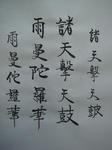 諸天擊天鼓
諸天擊天鼓
雨曼陀羅華
雨曼陀羅華